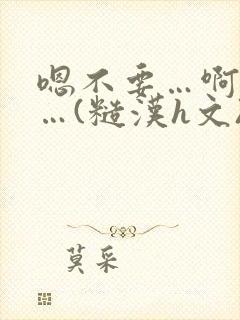 嗯不要…啊
…(糙漢h文
莫采